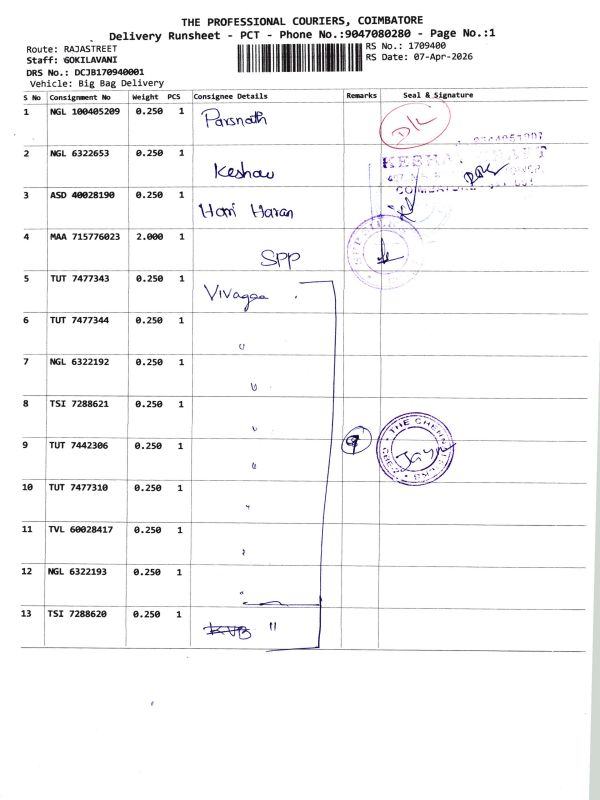 THE PROFESSIONAL COURIERS, COIMBATORE
Delivery Runsheet - PCT - Phone No.:9047080280 - Page No.:1
Route: RAJASTREET
RS No.: 1709400
Staff: GOKILAVANI
RS Date: 07-Apr-2026
DRS No.: DCJB170940001
Vehicle: Big Bag Delivery
S No Consignment No Weight PCS Consignee Details Remarks Seal & Signature
1 NGL 100405209 0.250 1 Parsnath
2 NGL 6322653 0.250 1 Keshav
3 ASD 40028190 0.250 1 Hari Haran
4 MAA 715776023 2.000 1 SPP
5 TUT 7477343 0.250 1 Vivagaa
6 TUT 7477344 0.250 1 "
7 NGL 6322192 0.250 1 "
8 TSI 7288621 0.250 1 "
9 TUT 7442306 0.250 1 " 9 THE CHENN
10 TUT 7477310 0.250 1 "
11 TVL 60028417 0.250 1 "
12 NGL 6322193 0.250 1 "
13 TSI 7288620 0.250 1 KVB "